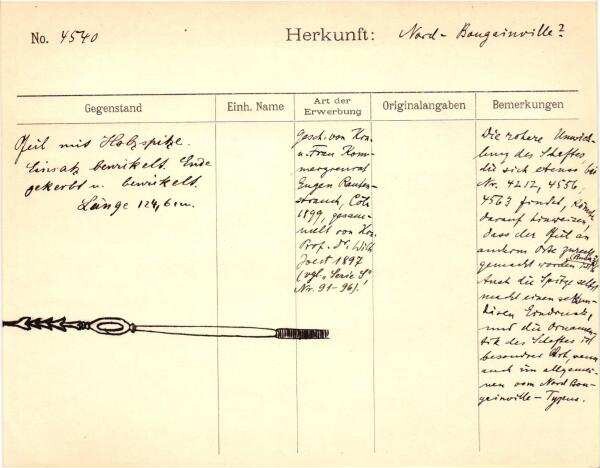 No. 4540
Herkunft: Nord-Bougainville?
Gegenstand
Einh. Name
Art der Erwerbung
Originalangaben
Bemerkungen
Pfeil mit Holzspitze.
Einsatz bewickelt. Ende
gekerbt u. bewickelt.
Länge 124,6 cm.
Gesch. von Hrn.
u. Frau Kom-
merzienrat
Eugen Rauten-
strauch, Cöln
1899, gesam-
melt von Hrn.
Prof. Dr. Wilh.
Joest 1897
(vgl. "Serie S"
Nr. 91-96)!
Die rohere Umwick-
lung des Schaftes
die sich ebenso bei
Nr. 4212, 4556,
4563 findet, könnte
darauf hinweisen,
dass der Pfeil an
anderem Orte zurecht
gemacht worden ist.
Auch die Spitze selbst
macht einen
Eindruck,
und die Ornamen-
tik des Schaftes ist
besondrer Art, wenn
auch im allgemei-
nen vom Nord Bou-
gainville-Typus.